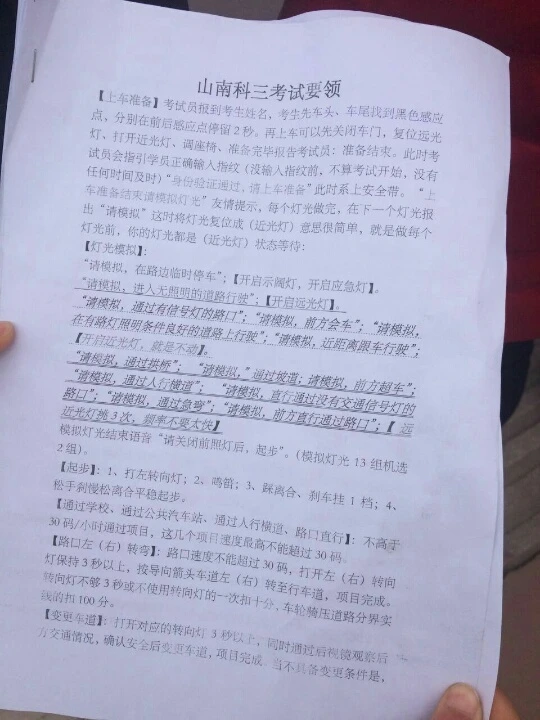 山南科三考试要领
【上车准备】考试员报到考生姓名，考生先车头、车尾找到黑色感应
点，分别在前后感应点停留2秒。再上车可以先关闭车门，复位远光
灯、打开近光灯、调座椅、准备完毕报告考试员：准备结束。此时考
试员会指引学员正确输入指纹（没输入指纹前，不算考试开始，没有
任何时间及时）“身份验证通过，请上车准备”此时系上安全带。“上
车准备结束请模拟灯光”友情提示，每个灯光做完，在下一个灯光报
出“请模拟”这时将灯光复位成（近光灯）意思很简单，就是做每个
灯光前，你的灯光都是（近光灯）状态等待：
【灯光模拟】：
“请模拟，在路边临时停车”；【开启示阔灯，开启应急灯】。
“请模拟，进入无照明的道路行驶”；【开启远光灯】。
“请模拟，通过有信号灯的路口”；“请模拟，前方会车”；“请模拟，
在有路灯照明条件良好的道路上行驶”；“请模拟，近距离跟车行驶”；
【开启近光灯，就是不动】。
“请模拟，通过拱桥”；“请模拟，”通过坡道；请模拟，前方超车”；
“请模拟，通过人行横道”；“请模拟，直行通过没有交通信号灯的
路口”；“请模拟，通过急弯”；“请模拟，前方直行通过路口”；【远
近光灯地3次，频率不要太快】
模拟灯光结束语音“请关闭前照灯后，起步”。（模拟灯光13组机选
2组）。
【起步】：1、打左转向灯；2、鸣笛；3、踩离合、刹车挂1档；4、
松手刹慢松离合平稳起步。
【通过学校、通过公共汽车站、通过人行横道、路口直行】：不高于
30码/小时通过项目，这几个项目速度最高不能超过30码。
【路口左（右）转弯】：路口速度不能超过30码，打开左（右）转向
灯保持3秒以上，按导向箭头车道左（右）转至行车道，项目完成。
转向灯不够3秒或不使用转向灯的一次扣十分，车轮骑压道路分界实
线的扣100分。
【变更车道】：打开对应的转向灯3秒以上，同时通过后视镜观察后
方交通情况，确认安全后变更车道，项目完成。当不具备变更条件是，